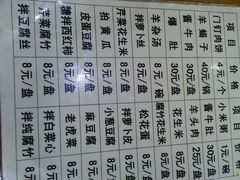 项目 价格 项目
门钉肉饼 元/个 小米粥
羊蝎子 40元/锅
酱牛肉 30元/盘 羊头肉 25元/盘
爆肚 30元/盘
羊杂汤 8元/碗 腐竹花生米
拌萝卜丝 8元/盘 松花蛋 8元/盘
芹菜花生米 8元/盘 拌萝卜皮 8元/盘
拍黄瓜 8元/盘 小葱豆腐 8元/盘
皮蛋豆腐 8元/盘 麻豆腐 8元/盘
糖拌西红柿 8元/盘 老虎菜 8元/盘
芹菜腐竹 8元/盘 拌白菜心 8元/盘
拌豆腐丝 8元/盘 拌纯腐竹 8元/盘